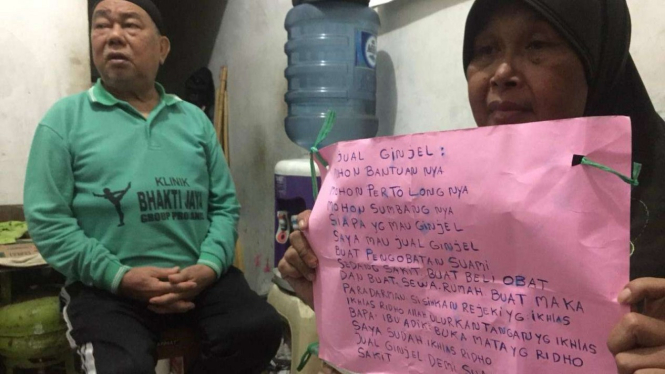 KLINIK
BHAKTI JAYA
JUAL GINJEL :
MOHON BANTUAN NYA
MOHON PERTOLONG NYA
MOHON SUMBANG NYA
SIAPA YG MAU GINJEL
SAYA MAU JUAL GINJEL
BUAT PENGOBATAN SUAMI
SEDANG SAKIT. BUAT BELI OBAT
DAN BUAT. SEWA. RUMAH. BUAT MAKA
PARADARMAN SISIHKAN REJEKI YG IKHLAS
IKHLAS RIDHO ULURKAN TANGAN YG IKHLAS
BAPA. IBU ADIK. BUKA MATA YG RIDHO
SAYA SUDAH IKHLAS RIDHO
JUAL GINJEL DEMI
SAKIT